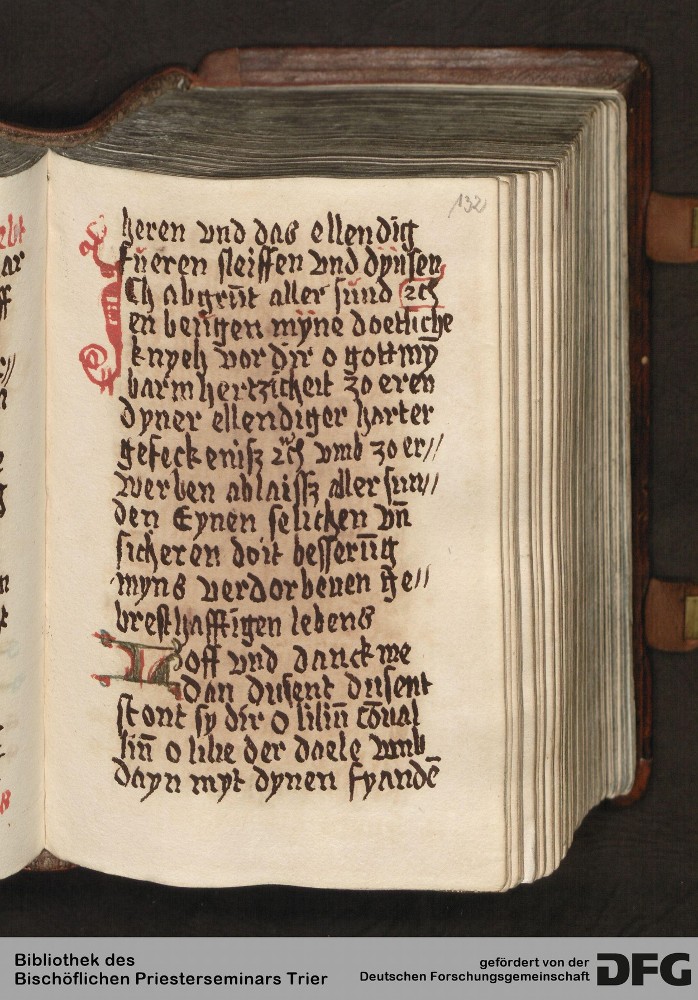 132
heren vnd das ellendig
fueren sleiffen vnd dynsen
Ich abgrūt aller sund ꝛcꝭ
en beügen myne doetliche
knyeh vor dir o gott mȳ
barmhertzicheit zo eren
dyner ellendiger harter
gefeckeniß ꝛcꝭ vmb zo er//
werben ablaissz aller sun//
den Eynen selichen vn̄
sicheren doit besserūg
myns verdorbenen ge//
bresthafftigen lebens
Loff vnd danck me
dan dusent dusent
stont sy dir O liliū cōual
liū o lilie der daele vmb
dayn myt dynen fyandē
Bibliothek des
Bischöflichen Priesterseminars Trier
gefördert von der
Deutschen Forschungsgemeinschaft
DFG